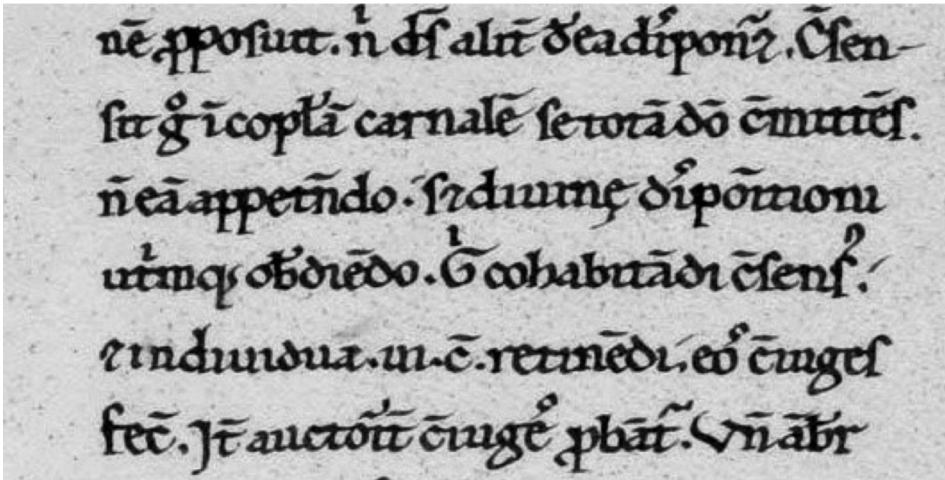 nē ꝓposuit. nͥ ds̄ alit̄ de ea disponer̃. C̄sen-
sit gͦ ī copl̄ā carnalē se totā dō c̄mittēs.
n̄ eā appetn̄do. sꝫ diuinę dispōitioni
utͥmqꝫ ob̄diēdo. Gͥ cohabitādi c̄sensꝰ.
⁊ indiuiduā. ui. c̄. retinēdi, eoꝰ c̄iuges
fec̄. It̄ auctoit̄ c̄iugēꝰ ꝓbat̃. Vn̄ ābr̄